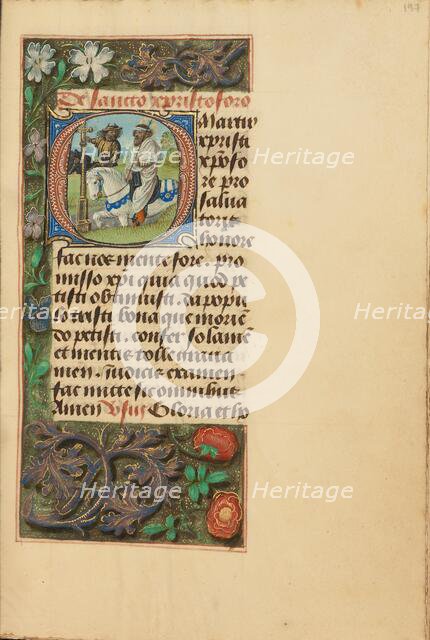 197
De sancto xpristoforo
Martir
xpristi
xpofo
re pro
salua
toris
honore
fac nos mente fore. pro
misso xpi quia quod pe
tisti obtinuisti. da popu
lo tristi bona que morien
do petisti. confer solamen
et mentis tolle
men. iudicis examen
fac mite sit omnibus
Amen Vsus Gloria et ho
Heritage Heritage
Heritage Heritage Heritage
Heritage Heritage